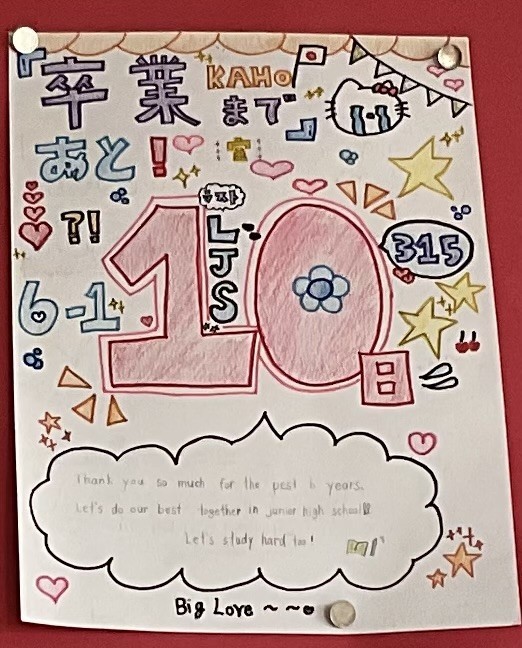 『卒業 KAHO
まで』
あと!
?!
LJS
315
6-1
10日
Thank you so much for the past 6 years.
Let's do our best together in junior high school!!
Let's study hard too!
Big Love ~~